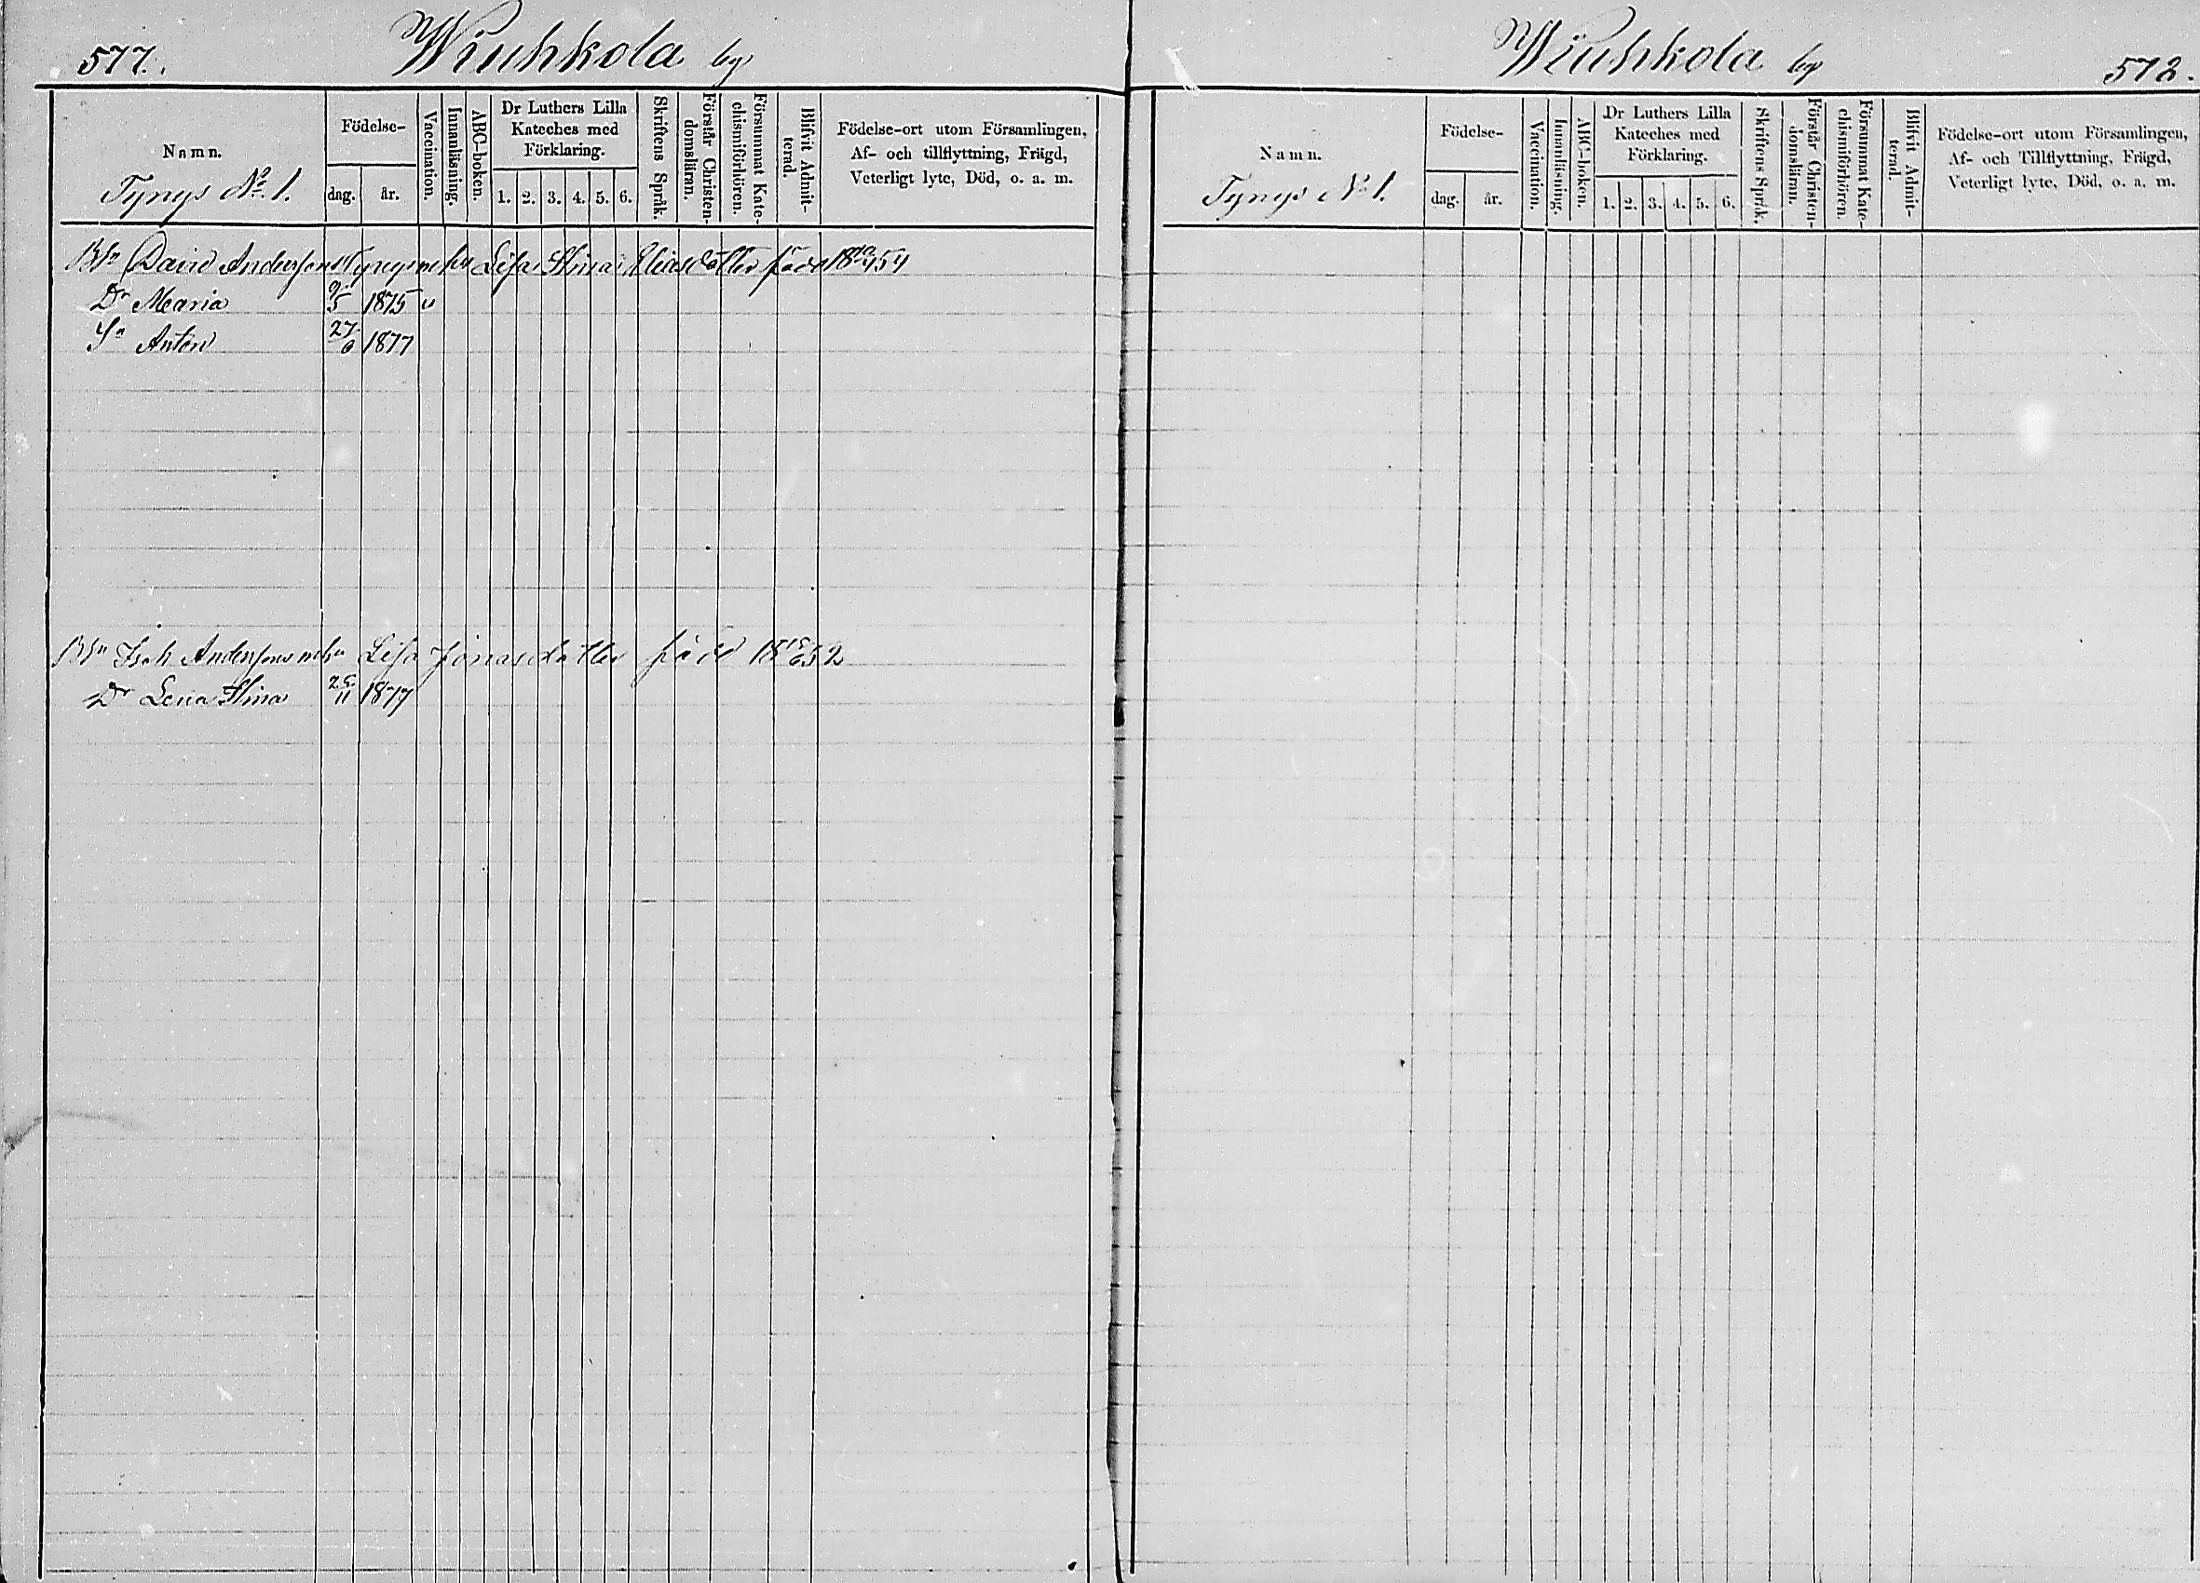 577.
Wiuhkola by
Namn.
Tynys No 1.
Födelse-
dag.
år.
Vaccination.
Innanläsning.
ABC-boken.
Dr Luthers Lilla
Kateches med
Förklaring.
1. 2. 3. 4. 5. 6.
Skriftens Språk.
Förstår Christen-
domsläran.
Försummat Kate-
chismiförhören.
Blifvit Admit-
terad.
Födelse-ort utom Församlingen,
Af- och tillflyttning, Frägd,
Veterligt lyte, Död, o. a. m.
Bn David Anderssons Tynys hu Lisa Stina Eliasdotter född 54
Dr Maria 9/5 1875 v
Sn Anton 27/6 1877
Bn Isak Anderssons hu Lisa Jonasdotter född 52
Dr Lena Stina 25/11 1877
Wiuhkola by
572.
Namn.
Tynys No 1.
Födelse-
dag.
år.
Vaccination.
Innanläsning.
ABC-boken.
Dr Luthers Lilla
Kateches med
Förklaring.
1. 2. 3. 4. 5. 6.
Skriftens Språk.
Förstår Christen-
domsläran.
Försummat Kate-
chismiförhören.
Blifvit Admit-
terad.
Födelse-ort utom Församlingen,
Af- och Tillflyttning, Frägd,
Veterligt lyte, Död, o. a. m.